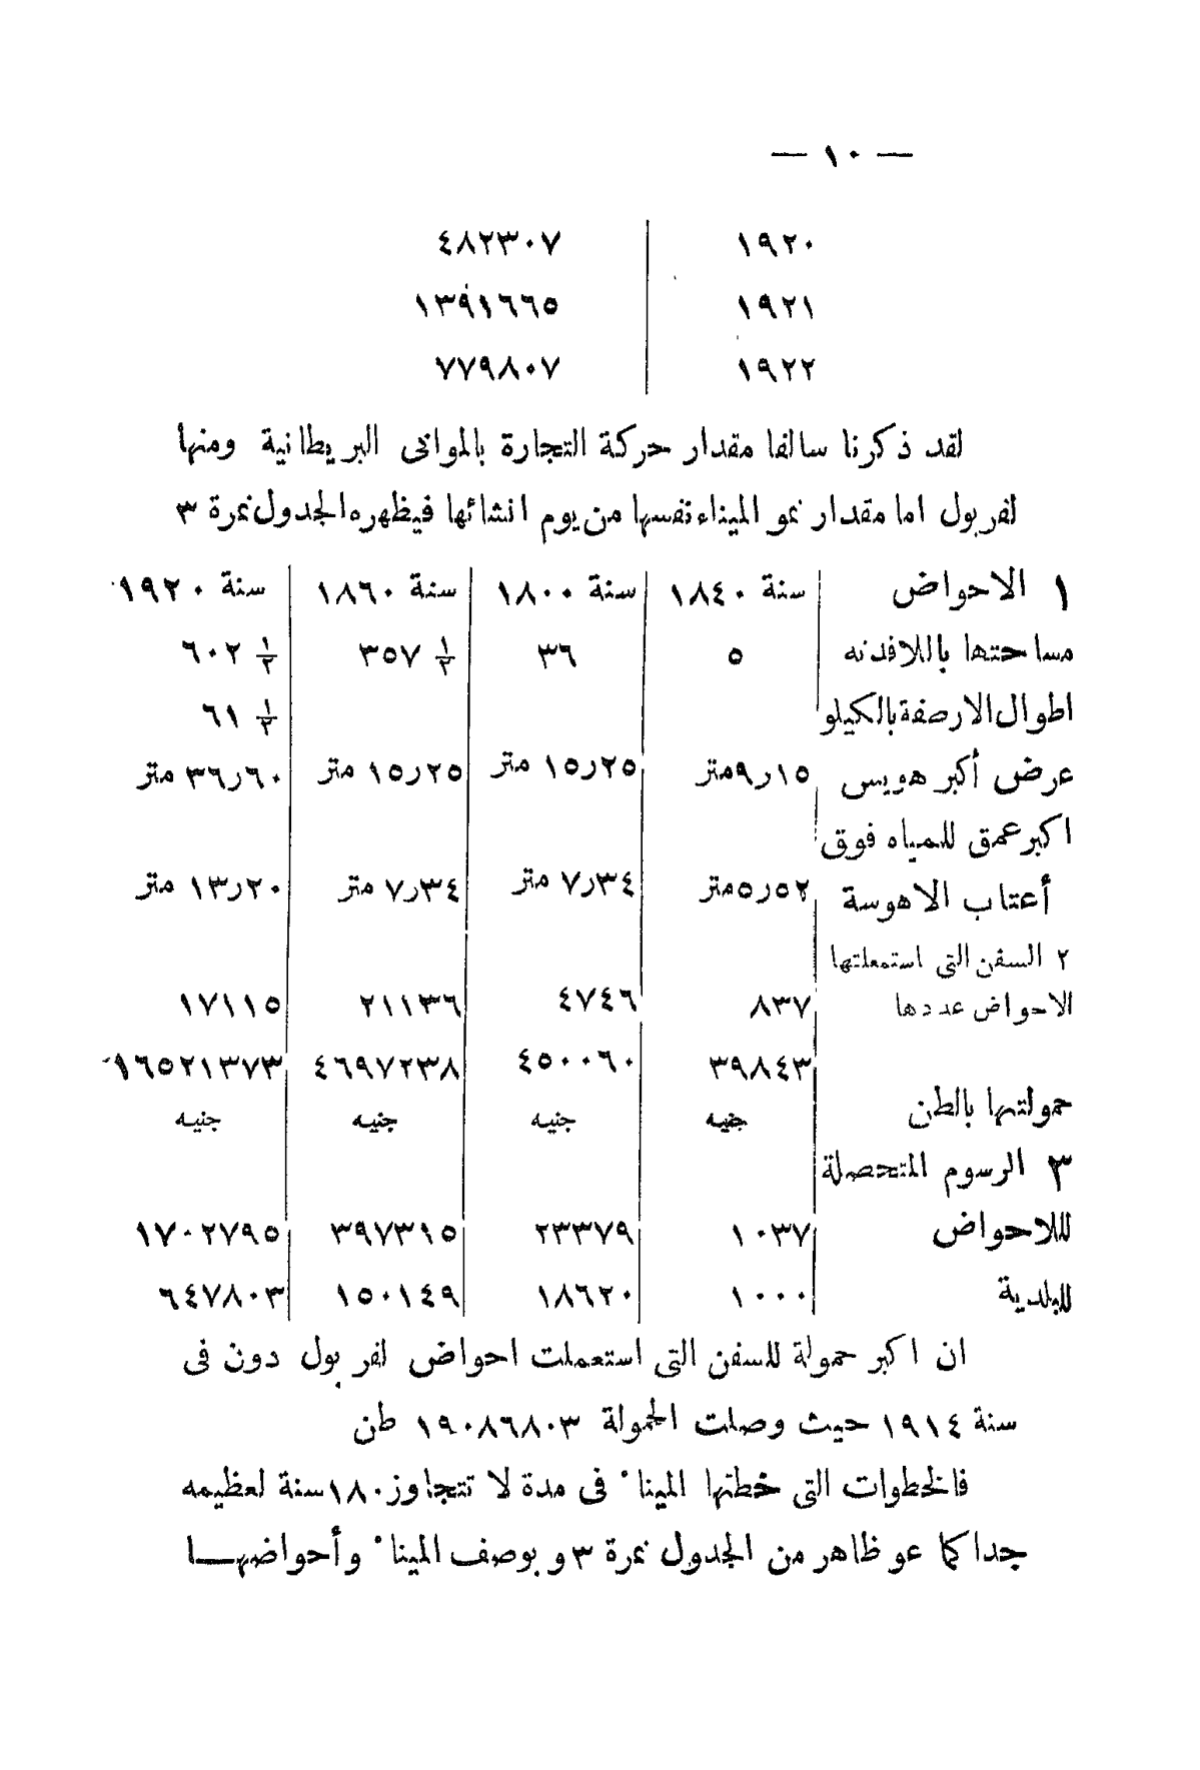 — ١٠ —
١٩٢٠ ٤٨٢٣٠٧
١٩٢١ ١٣٩١٦٦٥
١٩٢٢ ٧٧٩٨٠٧
لقد ذكرنا سالفا مقدار حركة التجارة بالموانى البريطانية ومنها
لفربول اما مقدار نمو الميناء نفسها من يوم انشائها فيظهره الجدول نمرة ٣
١ الاحواض سنة ١٨٤٠ سنة ١٨٠٠ سنة ١٨٦٠ سنة ١٩٢٠
مساحتها باللافدنه ٥ ٣٦ ٣٥٧ ١/٢ ٦٠٢ ١/٢
اطوال الارصفة بالكيلو ٦١ ١/٢
عرض أكبر هويس ٩ر١٥ متر ١٥ر٢٥ متر ١٥ر٢٥ متر ٣٦ر٦٠ متر
اكبر عمق للمياه فوق
أعتاب الاهوسة ٥ر٥٢ متر ٧ر٣٤ متر ٧ر٣٤ متر ١٣ر٢٠ متر
٢ السفن التى استمعلتها
الاحواض عددها ٨٣٧ ٤٧٤٦ ٢١١٣٦ ١٧١١٥
٣٩٨٤٣ ٤٥٠٠٦٠ ٤٦٩٧٢٣٨ ١٦٥٢١٣٧٣
حمولتها بالطن جنيه جنيه جنيه جنيه
٣ الرسوم المتحصلة
للاحواض ١٠٣٧ ٢٣٣٧٩ ٣٩٧٣١٥ ١٧٠٢٧٩٥
للبلدية ١٠٠٠ ١٨٦٢٠ ١٥٠١٤٩ ٦٤٧٨٠٣
ان اكبر حمولة للسفن التى استعملت احواض لفربول دون فى
سنة ١٩١٤ حيث وصلت الحمولة ١٩٠٨٦٨٠٣ طن
فالخطوات التى خطتها الميناء فى مدة لا تتجاوز ١٨٠ سنة لعظيمه
جدا كما عو ظاهر من الجدول نمرة ٣ و بوصف الميناء وأحواضهـــا